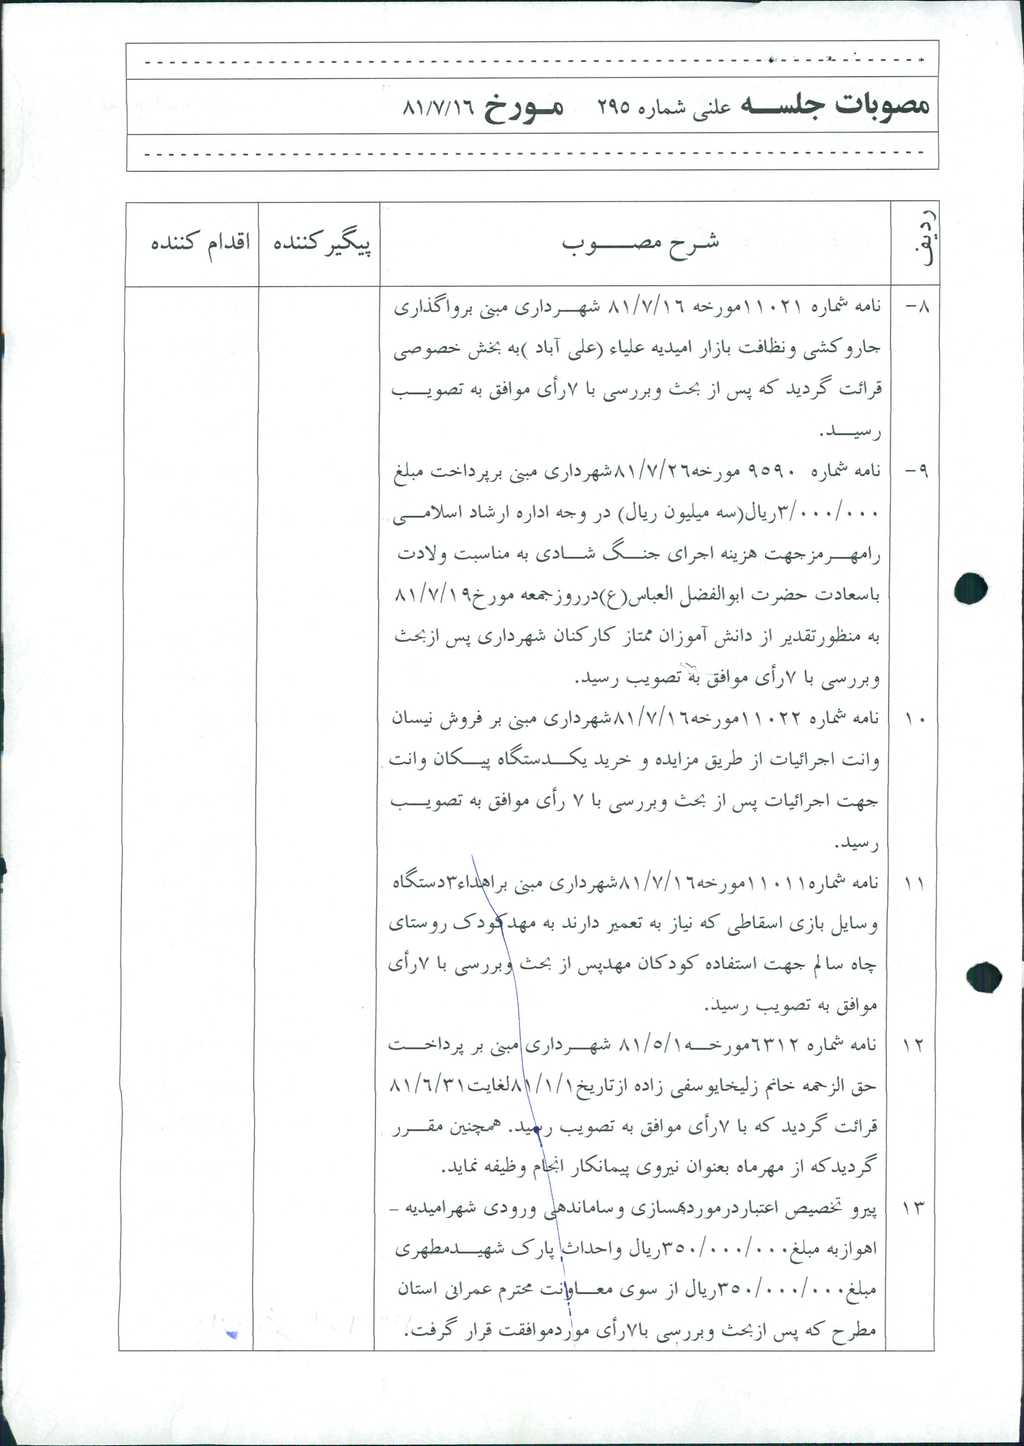 مصوبات جلسه علنی شماره ۲۹۵ مورخ ۸۱/۷/۱۶
ردیف شرح مصوب پیگیرکننده اقدام کننده
۸- نامه شماره ۱۱۰۲۱مورخه ۸۱/۷/۱۶ شهرداری مبنی برواگذاری
جاروکشی ونظافت بازار امیدیه علیاء (علی آباد )به بخش خصوصی
قرائت گردید که پس از بحث وبررسی با ۷رأی موافق به تصویب
رسید.
۹- نامه شماره ۹۵۹۰ مورخه۸۱/۷/۲۶شهرداری مبنی برپرداخت مبلغ
۳/۰۰۰/۰۰۰ریال(سه میلیون ریال) در وجه اداره ارشاد اسلامی
رامهرمزجهت هزینه اجرای جنگ شادی به مناسبت ولادت
باسعادت حضرت ابوالفضل العباس(ع)درروزجمعه مورخ۸۱/۷/۱۹
به منظورتقدیر از دانش آموزان ممتاز کارکنان شهرداری پس ازبحث
وبررسی با ۷رأی موافق به تصویب رسید.
۱۰ نامه شماره ۱۱۰۲۲مورخه۸۱/۷/۱۶شهرداری مبنی بر فروش نیسان
وانت اجرائیات از طریق مزایده و خرید یکدستگاه پیکان وانت
جهت اجرائیات پس از بحث وبررسی با ۷ رأی موافق به تصویب
رسید.
۱۱ نامه شماره۱۱۰۱۱مورخه۸۱/۷/۱۶شهرداری مبنی براهداء۳دستگاه
وسایل بازی اسقاطی که نیاز به تعمیر دارند به مهدکودک روستای
چاه سالم جهت استفاده کودکان مهدپس از بحث وبررسی با ۷رأی
موافق به تصویب رسید.
۱۲ نامه شماره ۶۳۱۲مورخه۸۱/۵/۱ شهرداری مبنی بر پرداخت
حق الزحمه خانم زلیخایوسفی زاده ازتاریخ۸۱/۱/۱لغایت۸۱/۶/۳۱
قرائت گردید که با ۷رأی موافق به تصویب رسید. همچنین مقرر
گردیدکه از مهرماه بعنوان نیروی پیمانکار انجام وظیفه نماید.
۱۳ پیرو تخصیص اعتباردرموردبهسازی وساماندهی ورودی شهرامیدیه -
اهوازبه مبلغ۳۵۰/۰۰۰/۰۰۰ریال واحداث پارک شهیدمطهری
مبلغ۳۵۰/۰۰۰/۰۰۰ریال از سوی معاونت محترم عمرانی استان
مطرح که پس ازبحث وبررسی با۷رأی موردموافقت قرار گرفت.